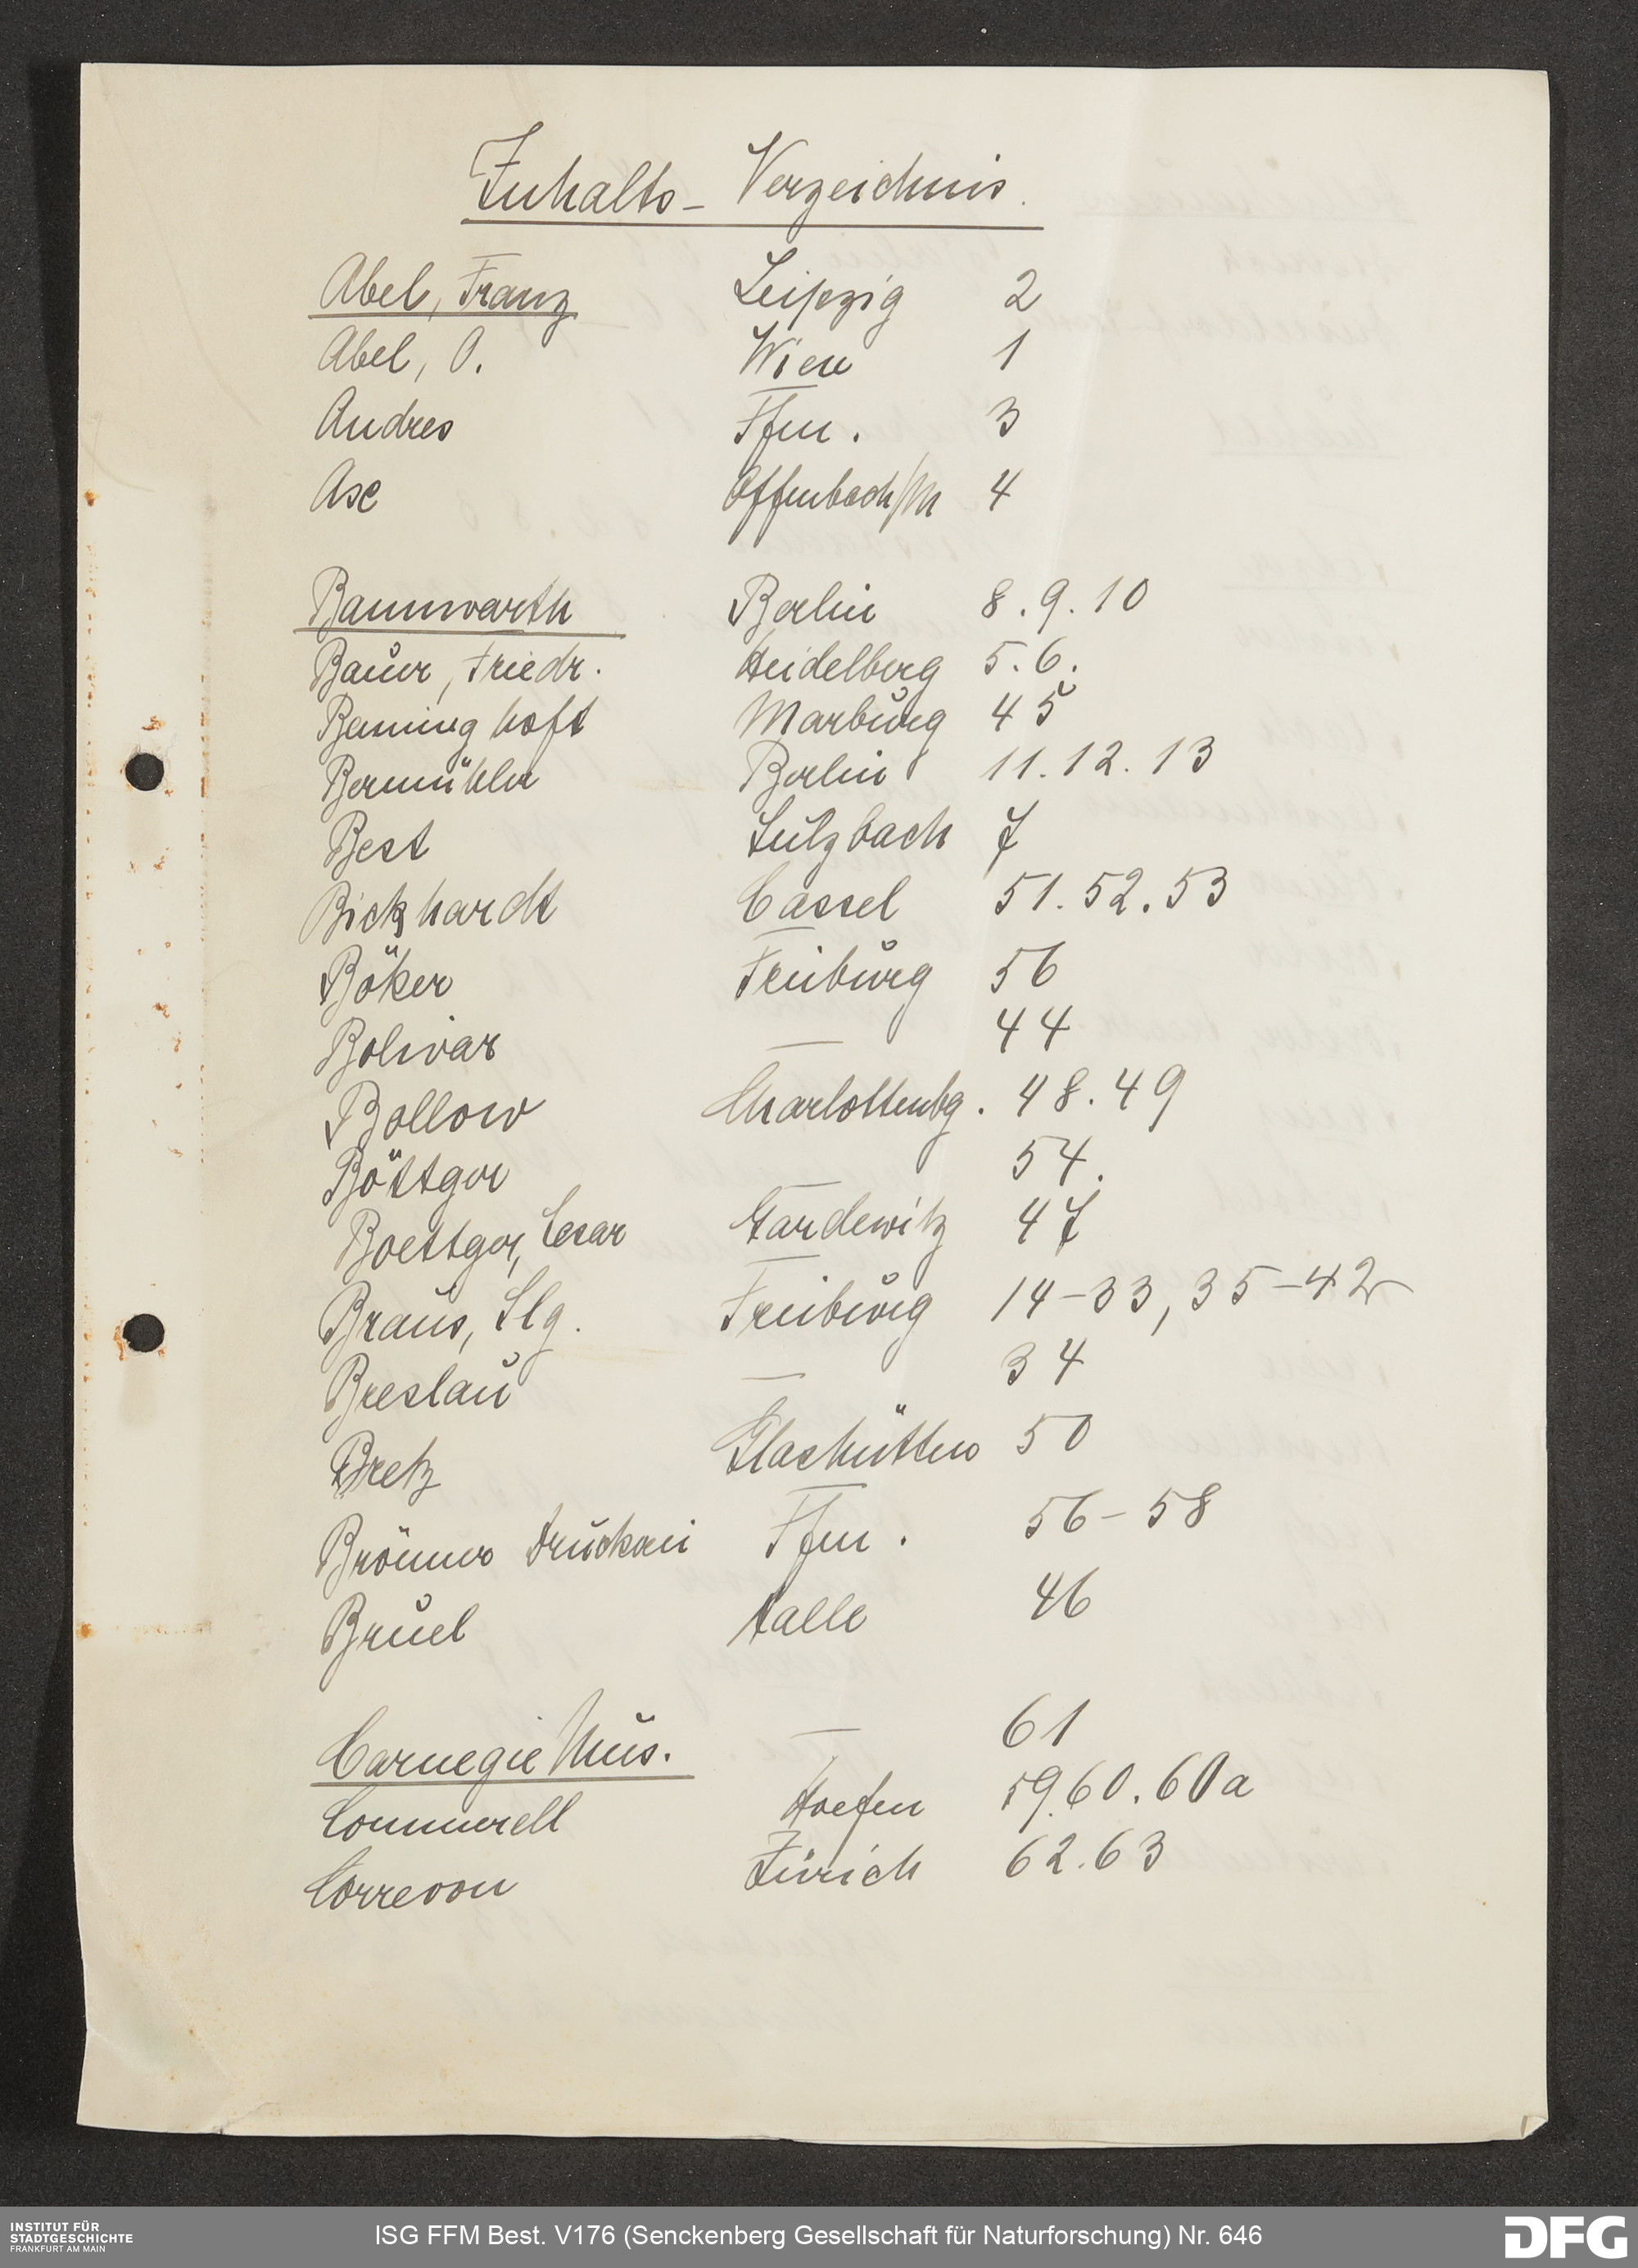 Inhalts- Verzeichnis.
Abel, Franz Leipzig 2
Abel, O. Wien 1
Andres Ffm. 3
Ase Offenbach/M 4
Bannwarth Berlin 8.9.10
Bauer, Friedr. Heidelberg 5.6.
Benninghoft Marburg 45
Bermühler Berlin 11.12.13
Best Sulzbach 7
Bickhardt Cassel 51.52.53
Böker Freiburg 56
Bolivar — 44
Bollow Charlottenbg. 48.49
Böttger — 54.
Boettger, Cesar Gardewitz 47
Braus, Slg. Freiburg 14-33, 35-42
Breslau — 34
Bretz Glashütten 50
Brönner Druckerei Ffm. 56-58
Bruel Halle 46
Carnegie Mus. — 61
Commerell Hoefen 59.60.60a
Correvon Zürich 62.63
INSTITUT FÜR
STADTGESCHICHTE
FRANKFURT AM MAIN
ISG FFM Best. V176 (Senckenberg Gesellschaft für Naturforschung) Nr. 646
DFG